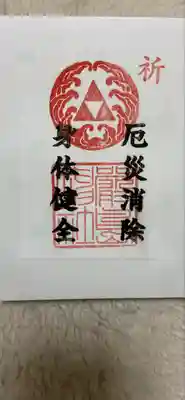 祈
厄災消除
身体健全